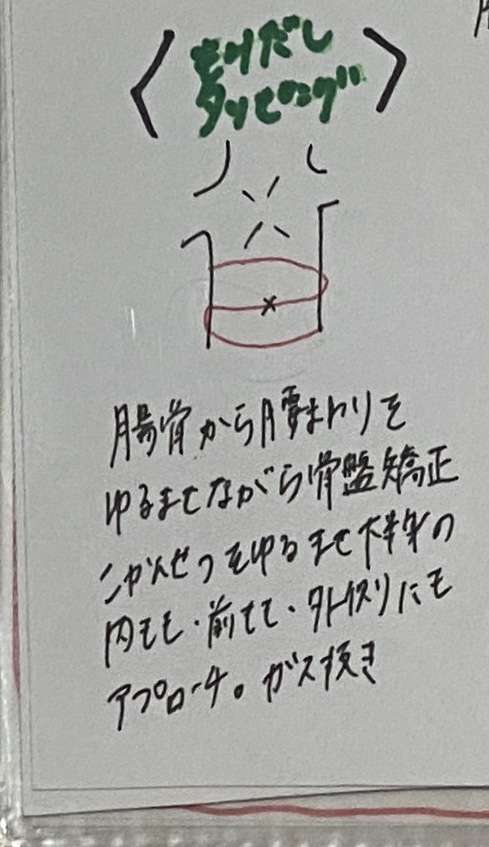 〈もみだし
タッピング〉
腸骨から腰まわりを
ゆるませながら骨盤矯正
こかんせつをゆるませ下半身の
内もも・前もも・外側にも
アプローチ。ガス抜き